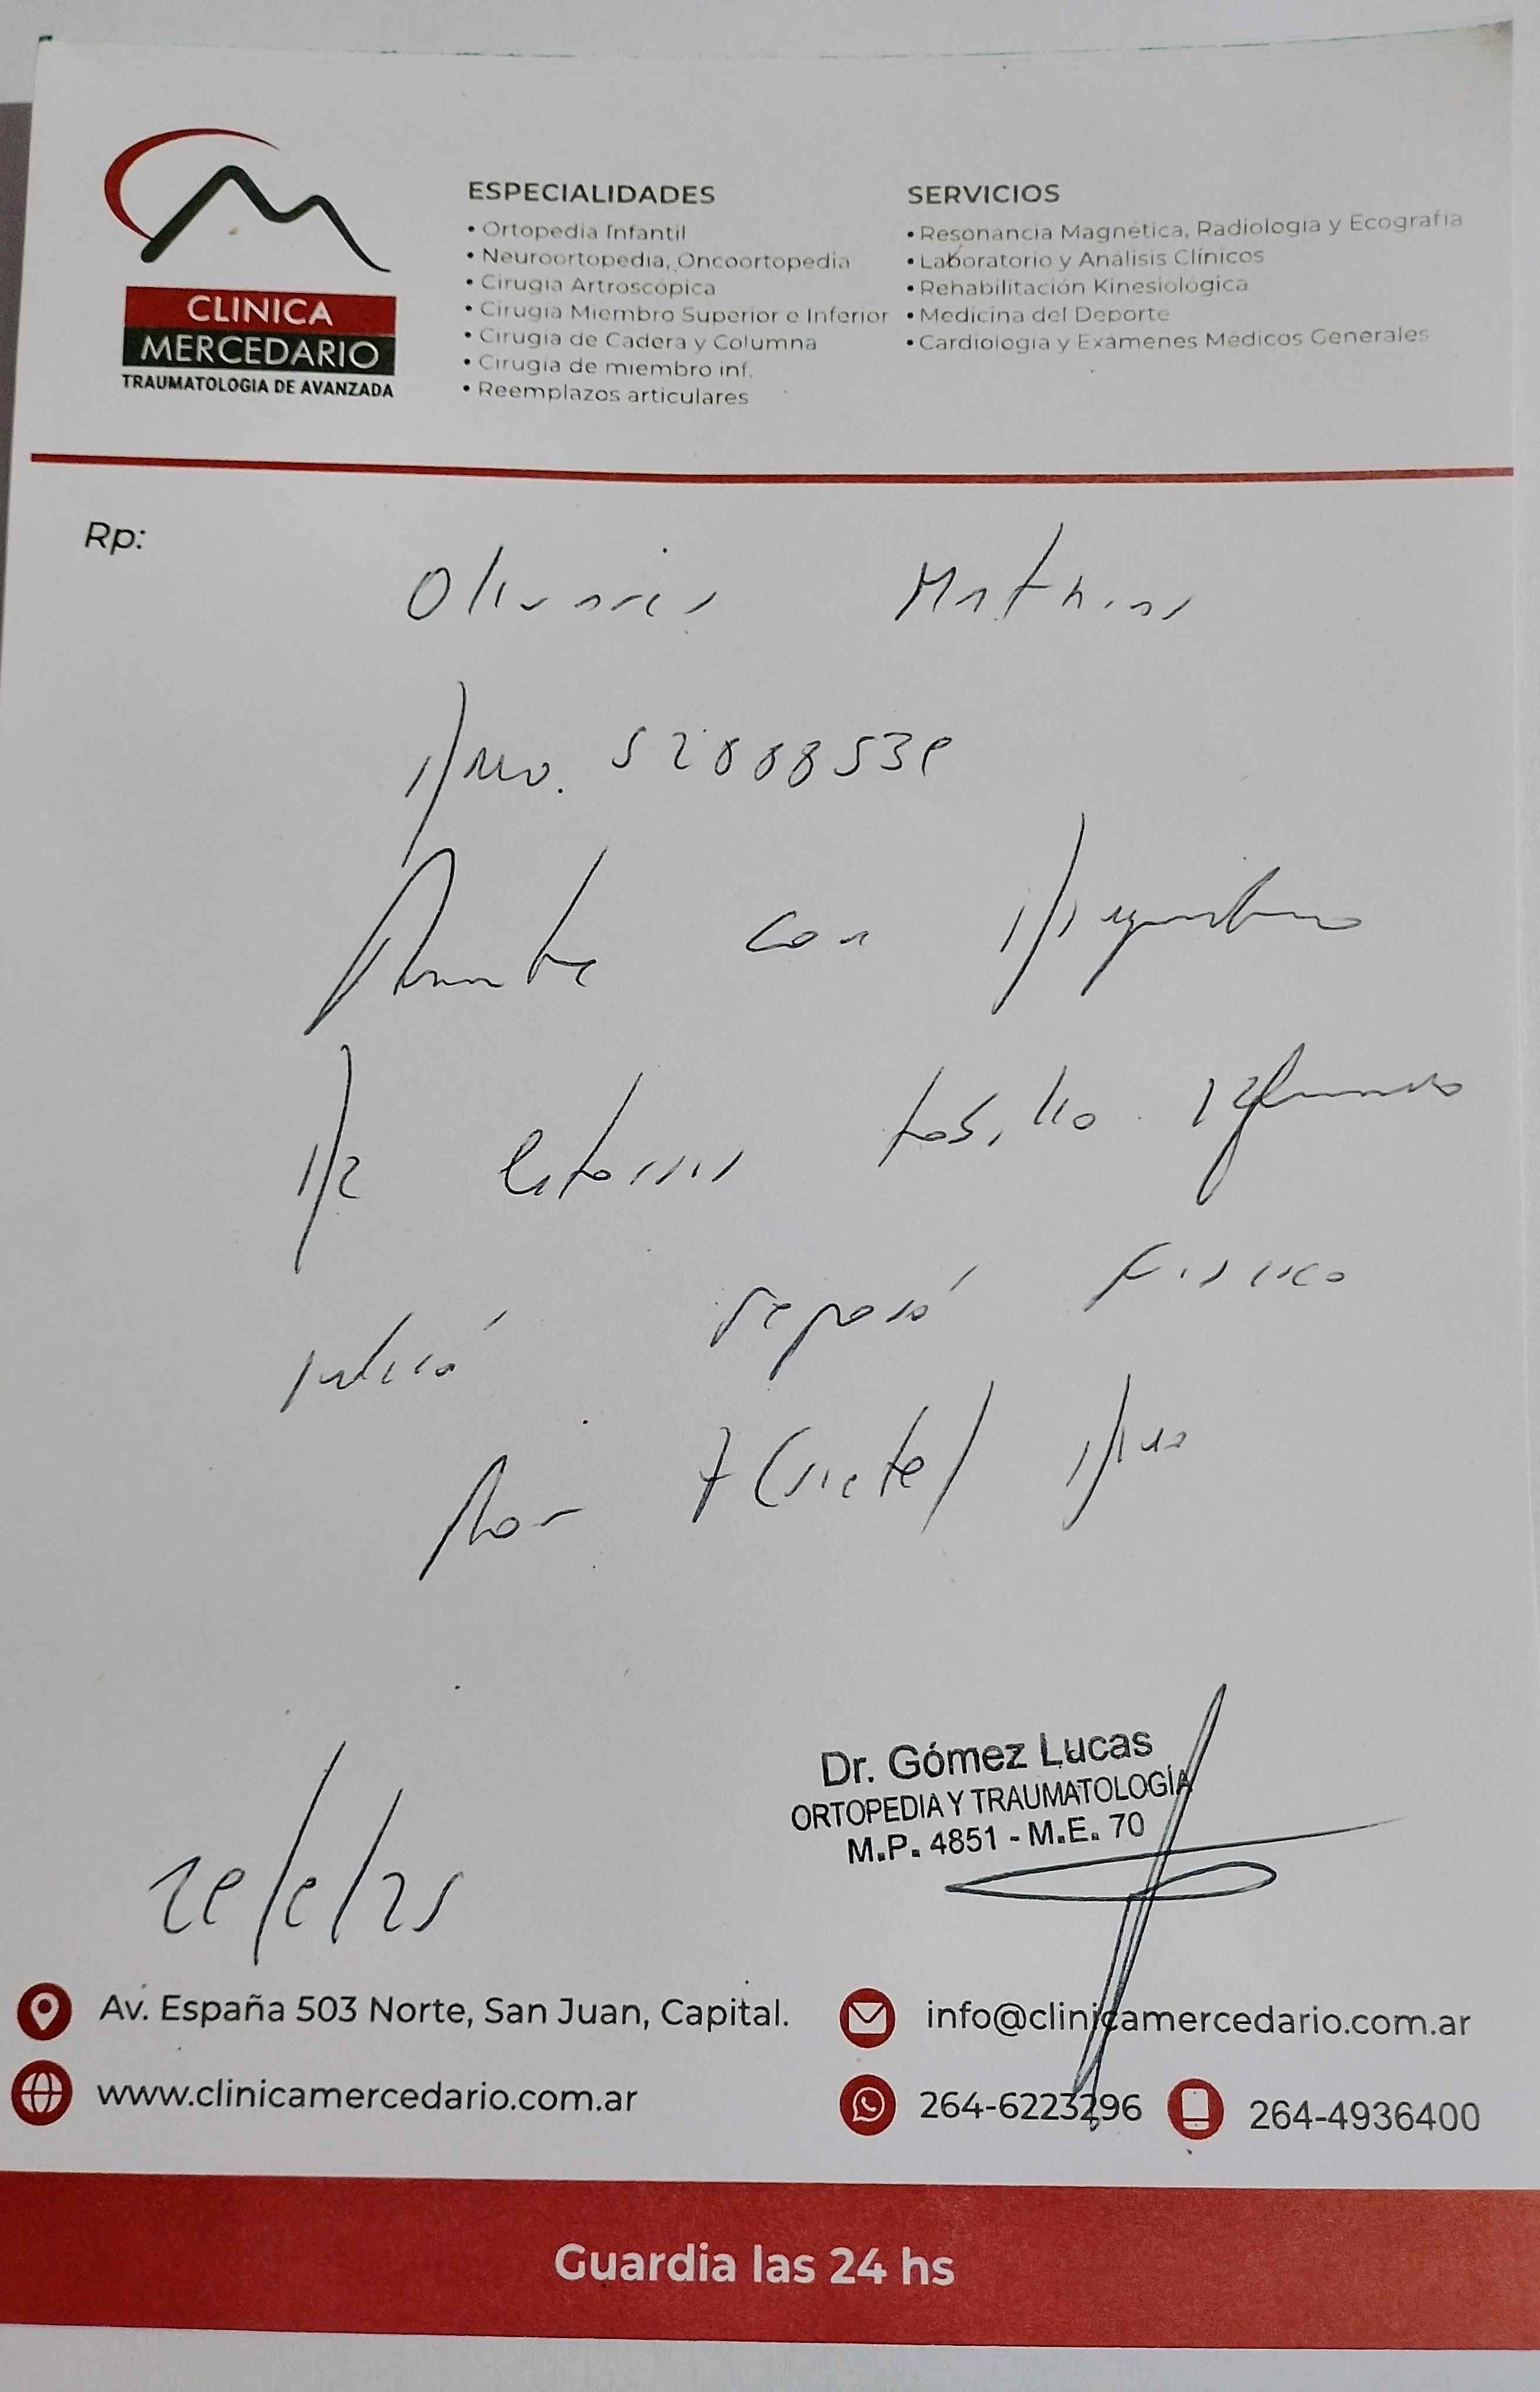 CLINICA
MERCEDARIO
TRAUMATOLOGIA DE AVANZADA
ESPECIALIDADES
• Ortopedia Infantil
• Neuroortopedia, Oncoortopedia
• Cirugía Artroscópica
• Cirugía Miembro Superior e Inferior
• Cirugía de Cadera y Columna
• Cirugía de miembro inf.
• Reemplazos articulares
SERVICIOS
• Resonancia Magnética, Radiología y Ecografía
• Laboratorio y Análisis Clínicos
• Rehabilitación Kinesiológica
• Medicina del Deporte
• Cardiología y Exámenes Médicos Generales
Rp:
Olivares Mathias
Paciente con diagnostico
de esguince tobillo izquierdo
indicó reposó físico
por 7 (siete) días
Dr. Gómez Lucas
ORTOPEDIA Y TRAUMATOLOGÍA
M.P. 4851 - M.E. 70
Av. España 503 Norte, San Juan, Capital.
info@clinicamercedario.com.ar
www.clinicamercedario.com.ar
264-6223296
264-4936400
Guardia las 24 hs